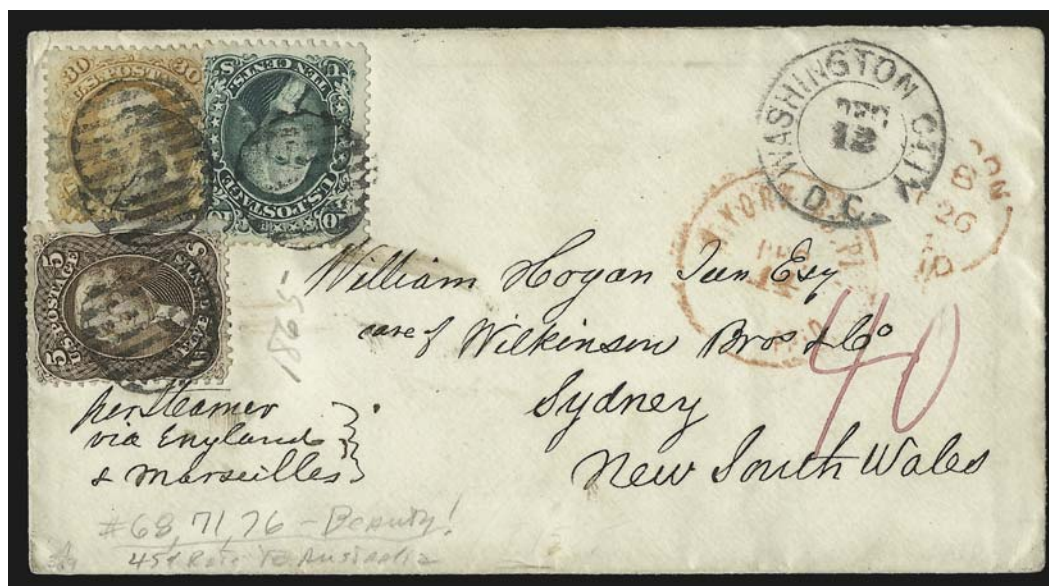 30 U.S. POSTAGE 30
TEN CENTS.
U.S. POSTAGE
10
5 5
U.S. POSTAGE
FIVE CENTS
WASHINGTON CITY
DEC
12
D.C.
26
William Hogan Jun Esq
care of Wilkinson Bros & Co
Sydney
New South Wales
40
per steamer
via England
& Marseilles
#68, 71, 76 - Beauty!
45¢ Rate to Australia